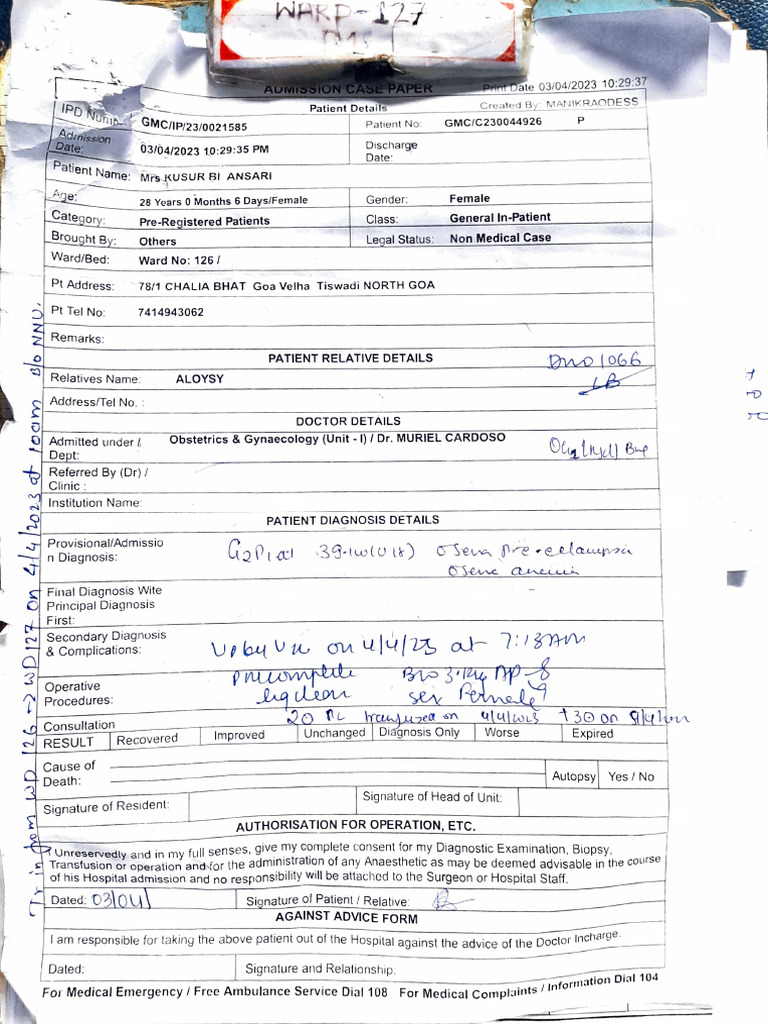 WARD-127
ADMISSION CASE PAPER
Print Date 03/04/2023 10:29:37
Patient Details
Created By: MANIKRAODESS
IPD Num
GMC/IP/23/0021585
Patient No:
GMC/C230044926
P
Admission Date:
03/04/2023 10:29:35 PM
Discharge Date:
Patient Name:
Mrs KUSUR BI ANSARI
Age:
28 Years 0 Months 6 Days/Female
Gender:
Female
Category:
Pre-Registered Patients
Class:
General In-Patient
Brought By:
Others
Legal Status:
Non Medical Case
Ward/Bed:
Ward No: 126 /
Pt Address:
78/1 CHALIA BHAT Goa Velha Tiswadi NORTH GOA
Pt Tel No:
7414943062
Remarks:
PATIENT RELATIVE DETAILS
DNO1066
Relatives Name:
ALOYSY
LB
Address/Tel No. :
DOCTOR DETAILS
Admitted under /
Dept:
Obstetrics & Gynaecology (Unit - I) / Dr. MURIEL CARDOSO
Referred By (Dr) /
Clinic :
Institution Name:
PATIENT DIAGNOSIS DETAILS
Provisional/Admissio
n Diagnosis:
G2P1 at 39 pre-eclampsia
anemia
Final Diagnosis Wite
Principal Diagnosis
First:
Secondary Diagnosis
& Complications:
on 4/4/23 at 7:18AM
Operative
Procedures:
sex Female
Consultation
transfused on 4/4/2023
RESULT
Recovered
Improved
Unchanged
Diagnosis Only
Worse
Expired
Cause of
Death:
Autopsy
Yes / No
Signature of Resident:
Signature of Head of Unit:
AUTHORISATION FOR OPERATION, ETC.
I Unreservedly and in my full senses, give my complete consent for my Diagnostic Examination, Biopsy,
Transfusion or operation and for the administration of any Anaesthetic as may be deemed advisable in the course
of his Hospital admission and no responsibility will be attached to the Surgeon or Hospital Staff.
Dated: 03/04/
Signature of Patient / Relative:
AGAINST ADVICE FORM
I am responsible for taking the above patient out of the Hospital against the advice of the Doctor Incharge.
Dated:
Signature and Relationship:
For Medical Emergency / Free Ambulance Service Dial 108 For Medical Complaints / Information Dial 104
Tr in from WD 126 → WD127 on 4/4/2023 at 10am B/o NNU.